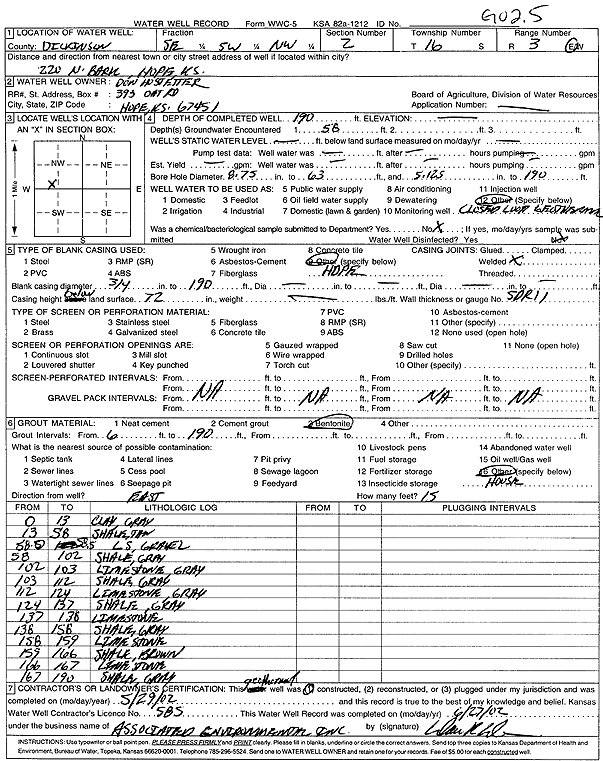 GO2.5
WATER WELL RECORD Form WWC-5 KSA 82a-1212 ID No.
1 LOCATION OF WATER WELL: Fraction Section Number Township Number Range Number
County: DICKINSON SE ¼ SW ¼ NW ¼ 2 T 16 S R 3 E/W
Distance and direction from nearest town or city street address of well if located within city?
220 N. BARK, HOPE, KS.
2 WATER WELL OWNER: DON HOSTETTER
RR#, St. Address, Box # : 393 OAT RD Board of Agriculture, Division of Water Resources
City, State, ZIP Code : HOPE, KS. 67451 Application Number:
3 LOCATE WELL'S LOCATION WITH AN "X" IN SECTION BOX:
N
NW NE
W X E
SW SE
S
1 Mile
4 DEPTH OF COMPLETED WELL 190 ft. ELEVATION:
Depth(s) Groundwater Encountered 1. 58 ft. 2. ft. 3. ft.
WELL'S STATIC WATER LEVEL ft. below land surface measured on mo/day/yr
Pump test data: Well water was ft. after hours pumping gpm
Est. Yield gpm: Well water was ft. after hours pumping gpm
Bore Hole Diameter 8.75 in. to 63 ft., and 5.125 in. to 190 ft.
WELL WATER TO BE USED AS: 5 Public water supply 8 Air conditioning 11 Injection well
1 Domestic 3 Feedlot 6 Oil field water supply 9 Dewatering 12 Other (Specify below)
2 Irrigation 4 Industrial 7 Domestic (lawn & garden) 10 Monitoring well CLOSED LOOP GEOTHERMAL
Was a chemical/bacteriological sample submitted to Department? Yes No X ; If yes, mo/day/yrs sample was submitted Water Well Disinfected? Yes No
5 TYPE OF BLANK CASING USED: 5 Wrought iron 8 Concrete tile CASING JOINTS: Glued Clamped
1 Steel 3 RMP (SR) 6 Asbestos-Cement 9 Other (specify below) Welded X
2 PVC 4 ABS 7 Fiberglass HDPE Threaded
Blank casing diameter 3/4 in. to 190 ft., Dia in. to ft., Dia in. to ft.
Casing height below land surface 72 in., weight lbs./ft. Wall thickness or gauge No. SDR11
TYPE OF SCREEN OR PERFORATION MATERIAL: 7 PVC 10 Asbestos-cement
1 Steel 3 Stainless steel 5 Fiberglass 8 RMP (SR) 11 Other (specify)
2 Brass 4 Galvanized steel 6 Concrete tile 9 ABS 12 None used (open hole)
SCREEN OR PERFORATION OPENINGS ARE: 5 Gauzed wrapped 8 Saw cut 11 None (open hole)
1 Continuous slot 3 Mill slot 6 Wire wrapped 9 Drilled holes
2 Louvered shutter 4 Key punched 7 Torch cut 10 Other (specify) ft.
SCREEN-PERFORATED INTERVALS: From ft. to ft., From ft. to ft.
From N/A ft. to N/A ft., From N/A ft. to N/A ft.
GRAVEL PACK INTERVALS: From ft. to ft., From ft. to ft.
From ft. to ft., From ft. to ft.
6 GROUT MATERIAL: 1 Neat cement 2 Cement grout 3 Bentonite 4 Other
Grout Intervals: From 6 ft. to 190 ft., From ft. to ft., From ft. to ft.
What is the nearest source of possible contamination: 10 Livestock pens 14 Abandoned water well
1 Septic tank 4 Lateral lines 7 Pit privy 11 Fuel storage 15 Oil well/Gas well
2 Sewer lines 5 Cess pool 8 Sewage lagoon 12 Fertilizer storage 16 Other (specify below)
3 Watertight sewer lines 6 Seepage pit 9 Feedyard 13 Insecticide storage HOUSE
Direction from well? EAST How many feet? 15
FROM TO LITHOLOGIC LOG FROM TO PLUGGING INTERVALS
0 13 CLAY GRAY
13 58 SHALE, TAN
58.0 58.5 L.S. GRAVEL
58 102 SHALE, GRAY
102 103 LIMESTONE, GRAY
103 112 SHALE, GRAY
112 124 LIMESTONE, GRAY
124 137 SHALE, GRAY
137 138 LIMESTONE
138 158 SHALE, GRAY
158 159 LIMESTONE
159 166 SHALE, BROWN
166 167 LIMESTONE
167 190 SHALE, GRAY
7 CONTRACTOR'S OR LANDOWNER'S CERTIFICATION: This geothermal well was (1) constructed, (2) reconstructed, or (3) plugged under my jurisdiction and was
completed on (mo/day/year) 5/29/02 and this record is true to the best of my knowledge and belief. Kansas
Water Well Contractor's Licence No. 585 This Water Well Record was completed on (mo/day/yr) 6/27/02
under the business name of ASSOCIATED ENVIRONMENTAL INC. by (signature)
INSTRUCTIONS: Use typewriter or ball point pen. PLEASE PRESS FIRMLY and PRINT clearly. Please fill in blanks, underline or circle the correct answers. Send top three copies to Kansas Department of Health and
Environment, Bureau of Water, Topeka, Kansas 66620-0001. Telephone 785-296-5524. Send one to WATER WELL OWNER and retain one for your records. Fee of $5.00 for each constructed well.